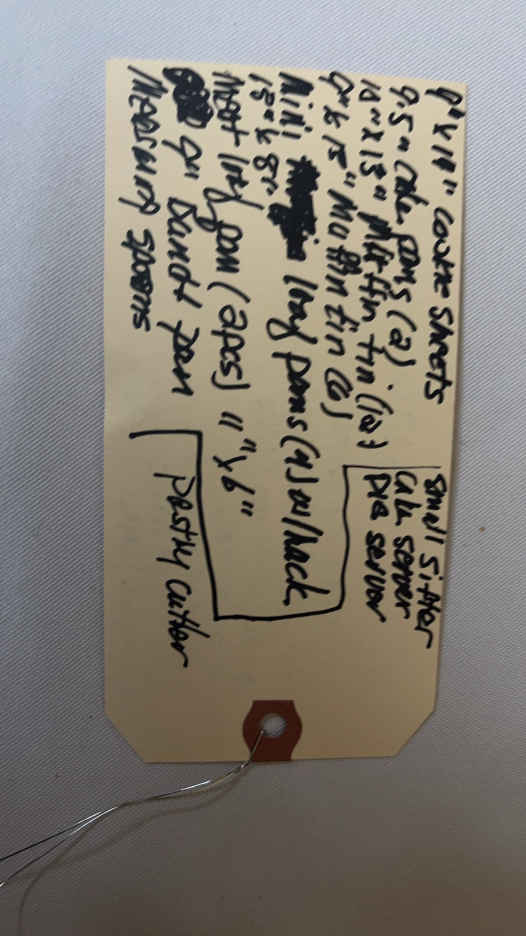 9" x 14" cookie sheets
9.5" cake pans (2)
10" x 13" Muffin tin (12)
9" x 13" Muffin tin (6)
Mini loaf pans (4) w/rack
15" x 8"
Meat loaf pan (2pcs) 11" x 6"
9" Bundt pan
Measuring spoons
small sifter
cake server
pie server
pastry cutter